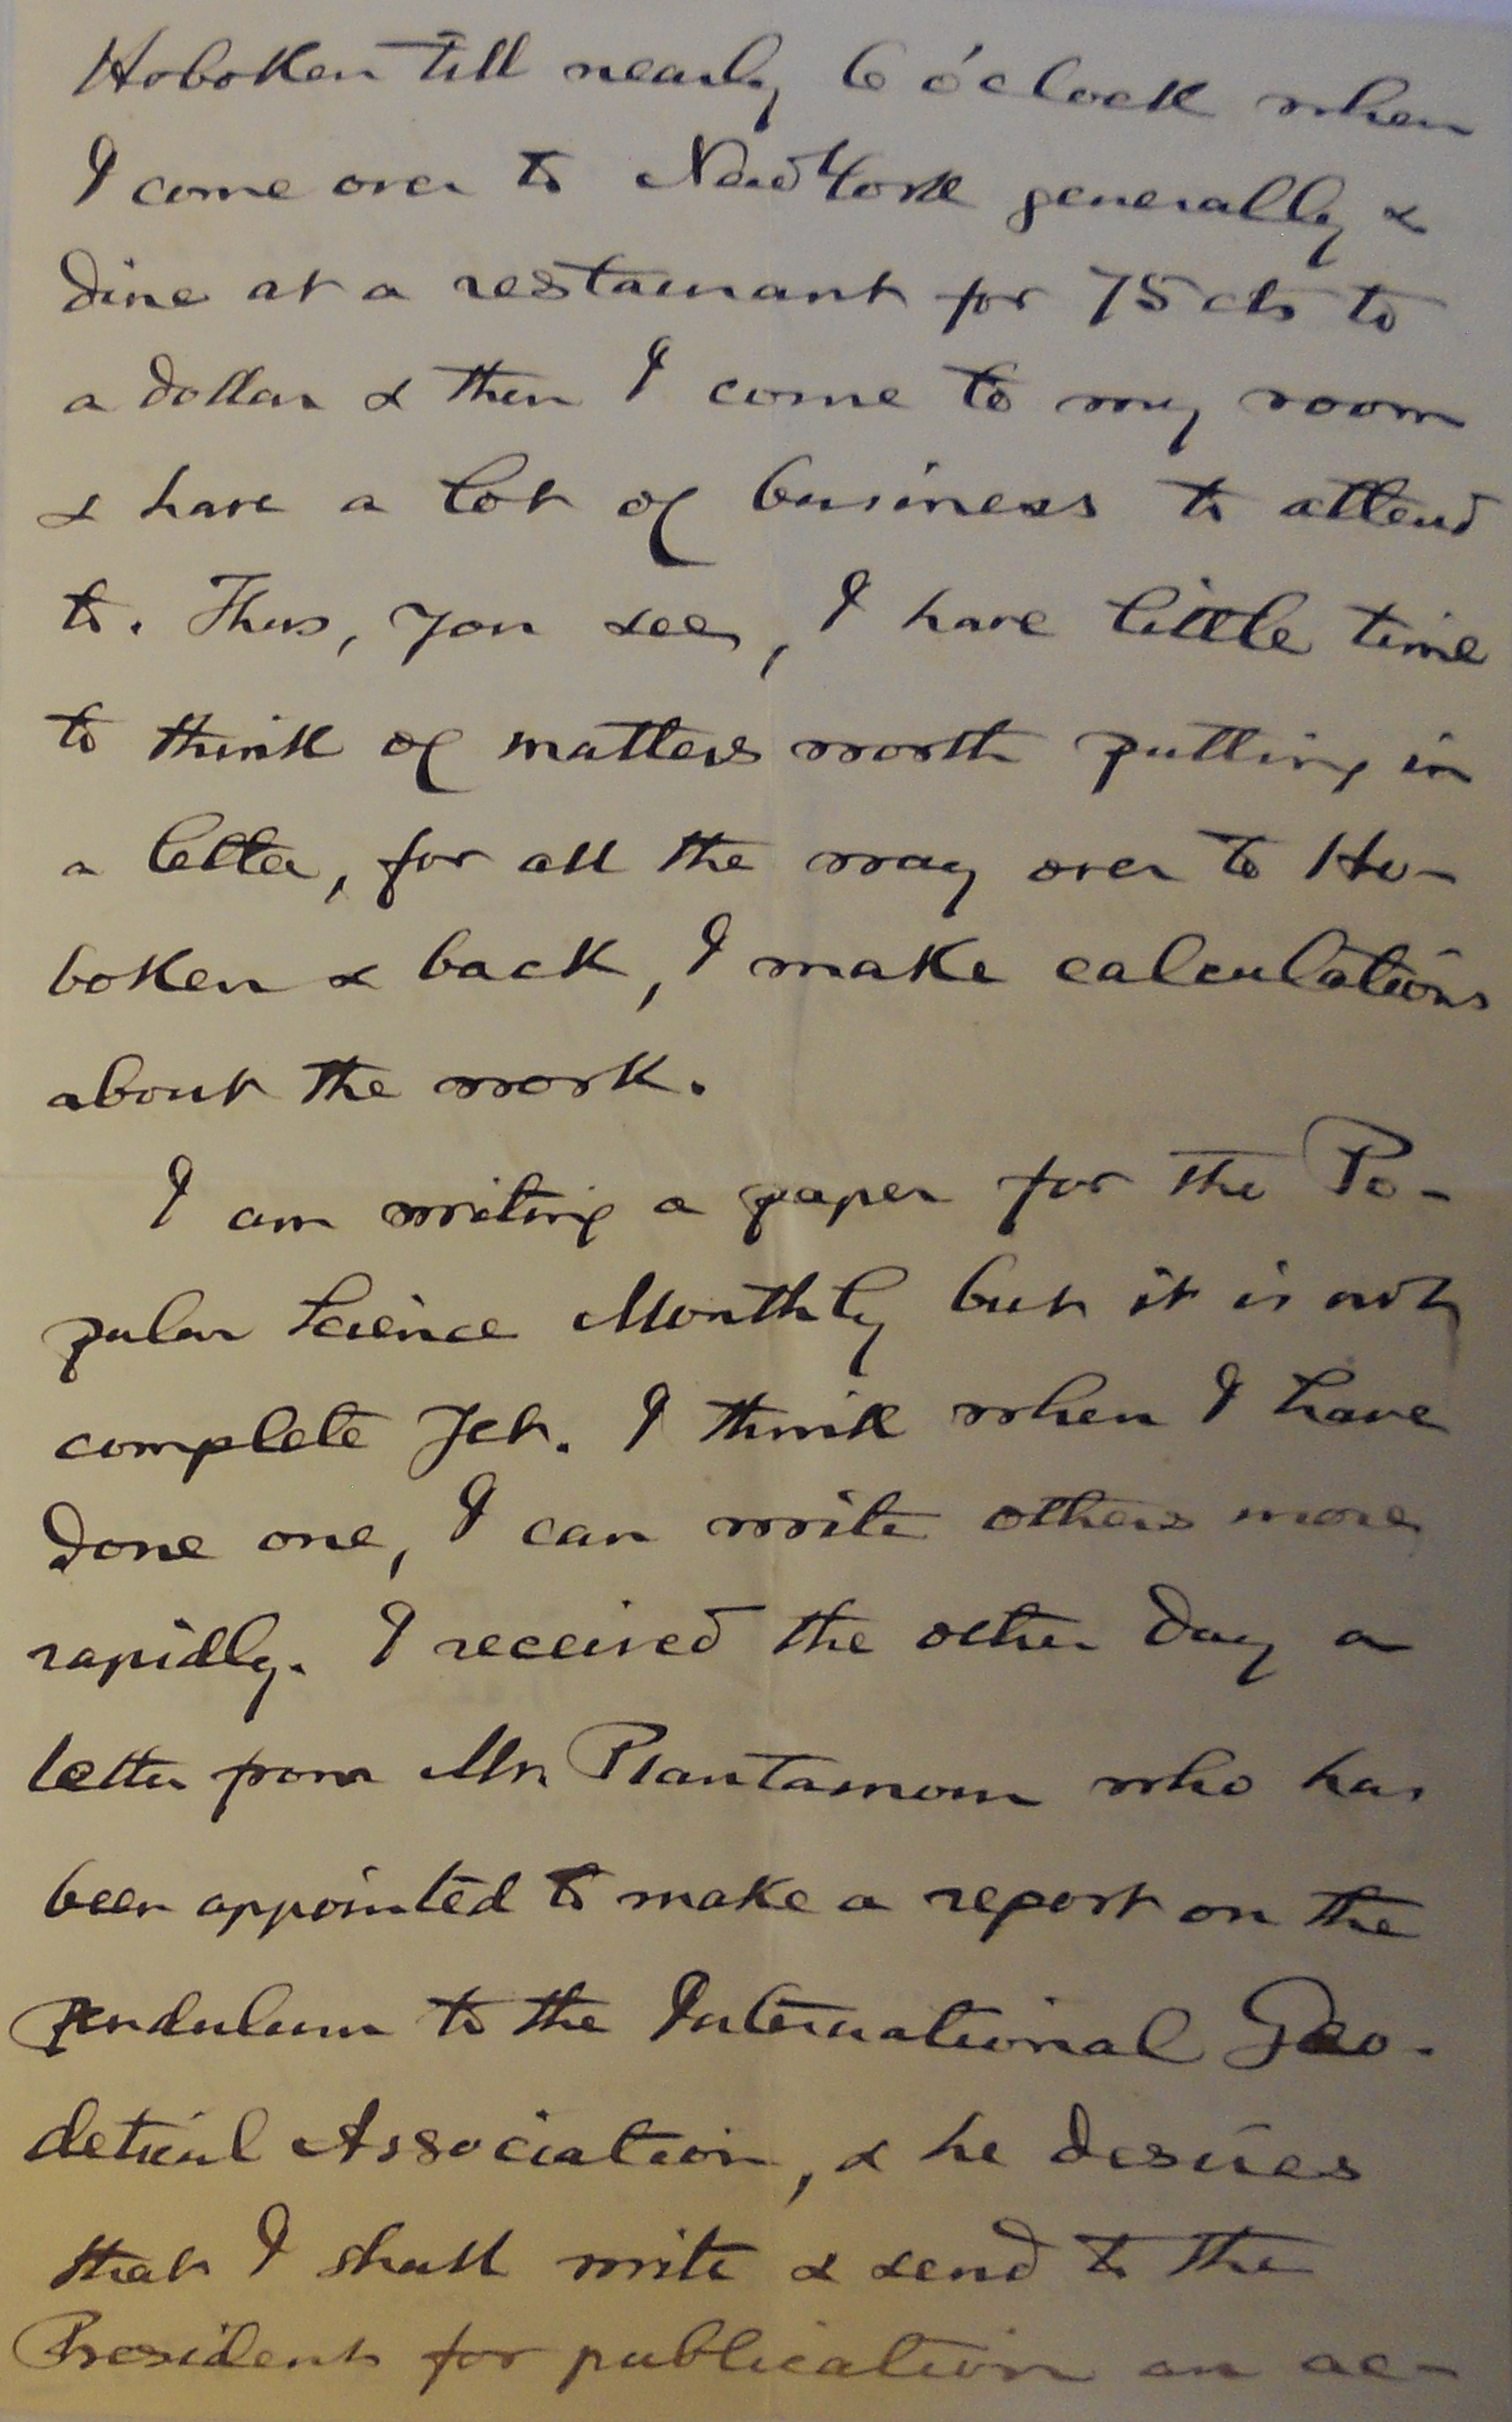 Hoboken till nearly 6 o'clock when
I come over to New York generally &
dine at a restaurant for 75 cts to
a dollar & then I come to my room
& have a lot of business to attend
to. Thus, you see, I have little time
to think of matters worth putting in
a letter, for all the way over to Ho-
boken & back, I make calculations
about the work.
I am writing a paper for the Po-
pular Science Monthly but it is not
complete yet. I think when I have
done one, I can write others more
rapidly. I received the other day a
letter from Mr. Plantamour who has
been appointed to make a report on the
pendulum to the International Geo-
detical Association, & he desires
that I shall write & send to the
President for publication an ac-